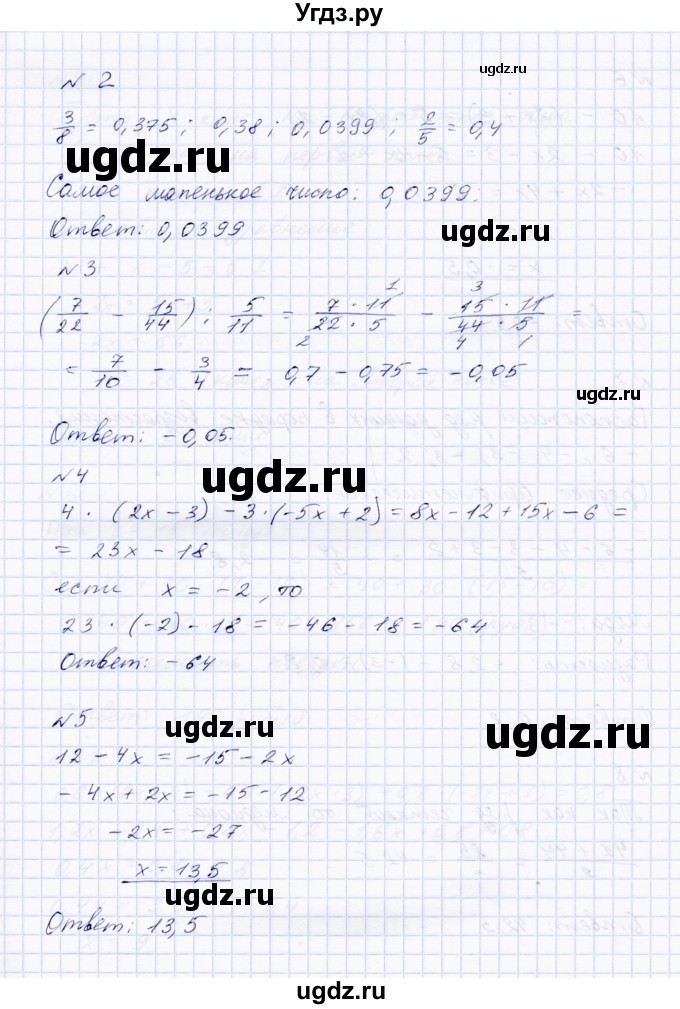 Угдз.ру
ugdz.ru
№ 2
3/8 = 0,375; 0,38; 0,0399; 2/5 = 0,4
ugdz.ru
Самое маленькое число: 0,0399.
ugdz.ru
Ответ: 0,0399
№3
(7/22 - 15/44) : 5/11 = 7 · 11/22 · 5 - 15 · 11/44 · 5 =
1 3
2 4 1
= 7/10 - 3/4 = 0,7 - 0,75 = -0,05
ugdz.ru
Ответ: -0,05.
ugdz.ru
№4
4 · (2x - 3) - 3 · (-5x + 2) = 8x - 12 + 15x - 6 =
= 23x - 18
ugdz.ru
если x = -2, то
23 · (-2) - 18 = -46 - 18 = -64
Ответ: -64
№5
ugdz.ru
ugdz.ru
12 - 4x = -15 - 2x
- 4x + 2x = -15 - 12
-2x = -27
x = 13,5
ugdz.ru
Ответ: 13,5
ugdz.ru
ugdz.ru